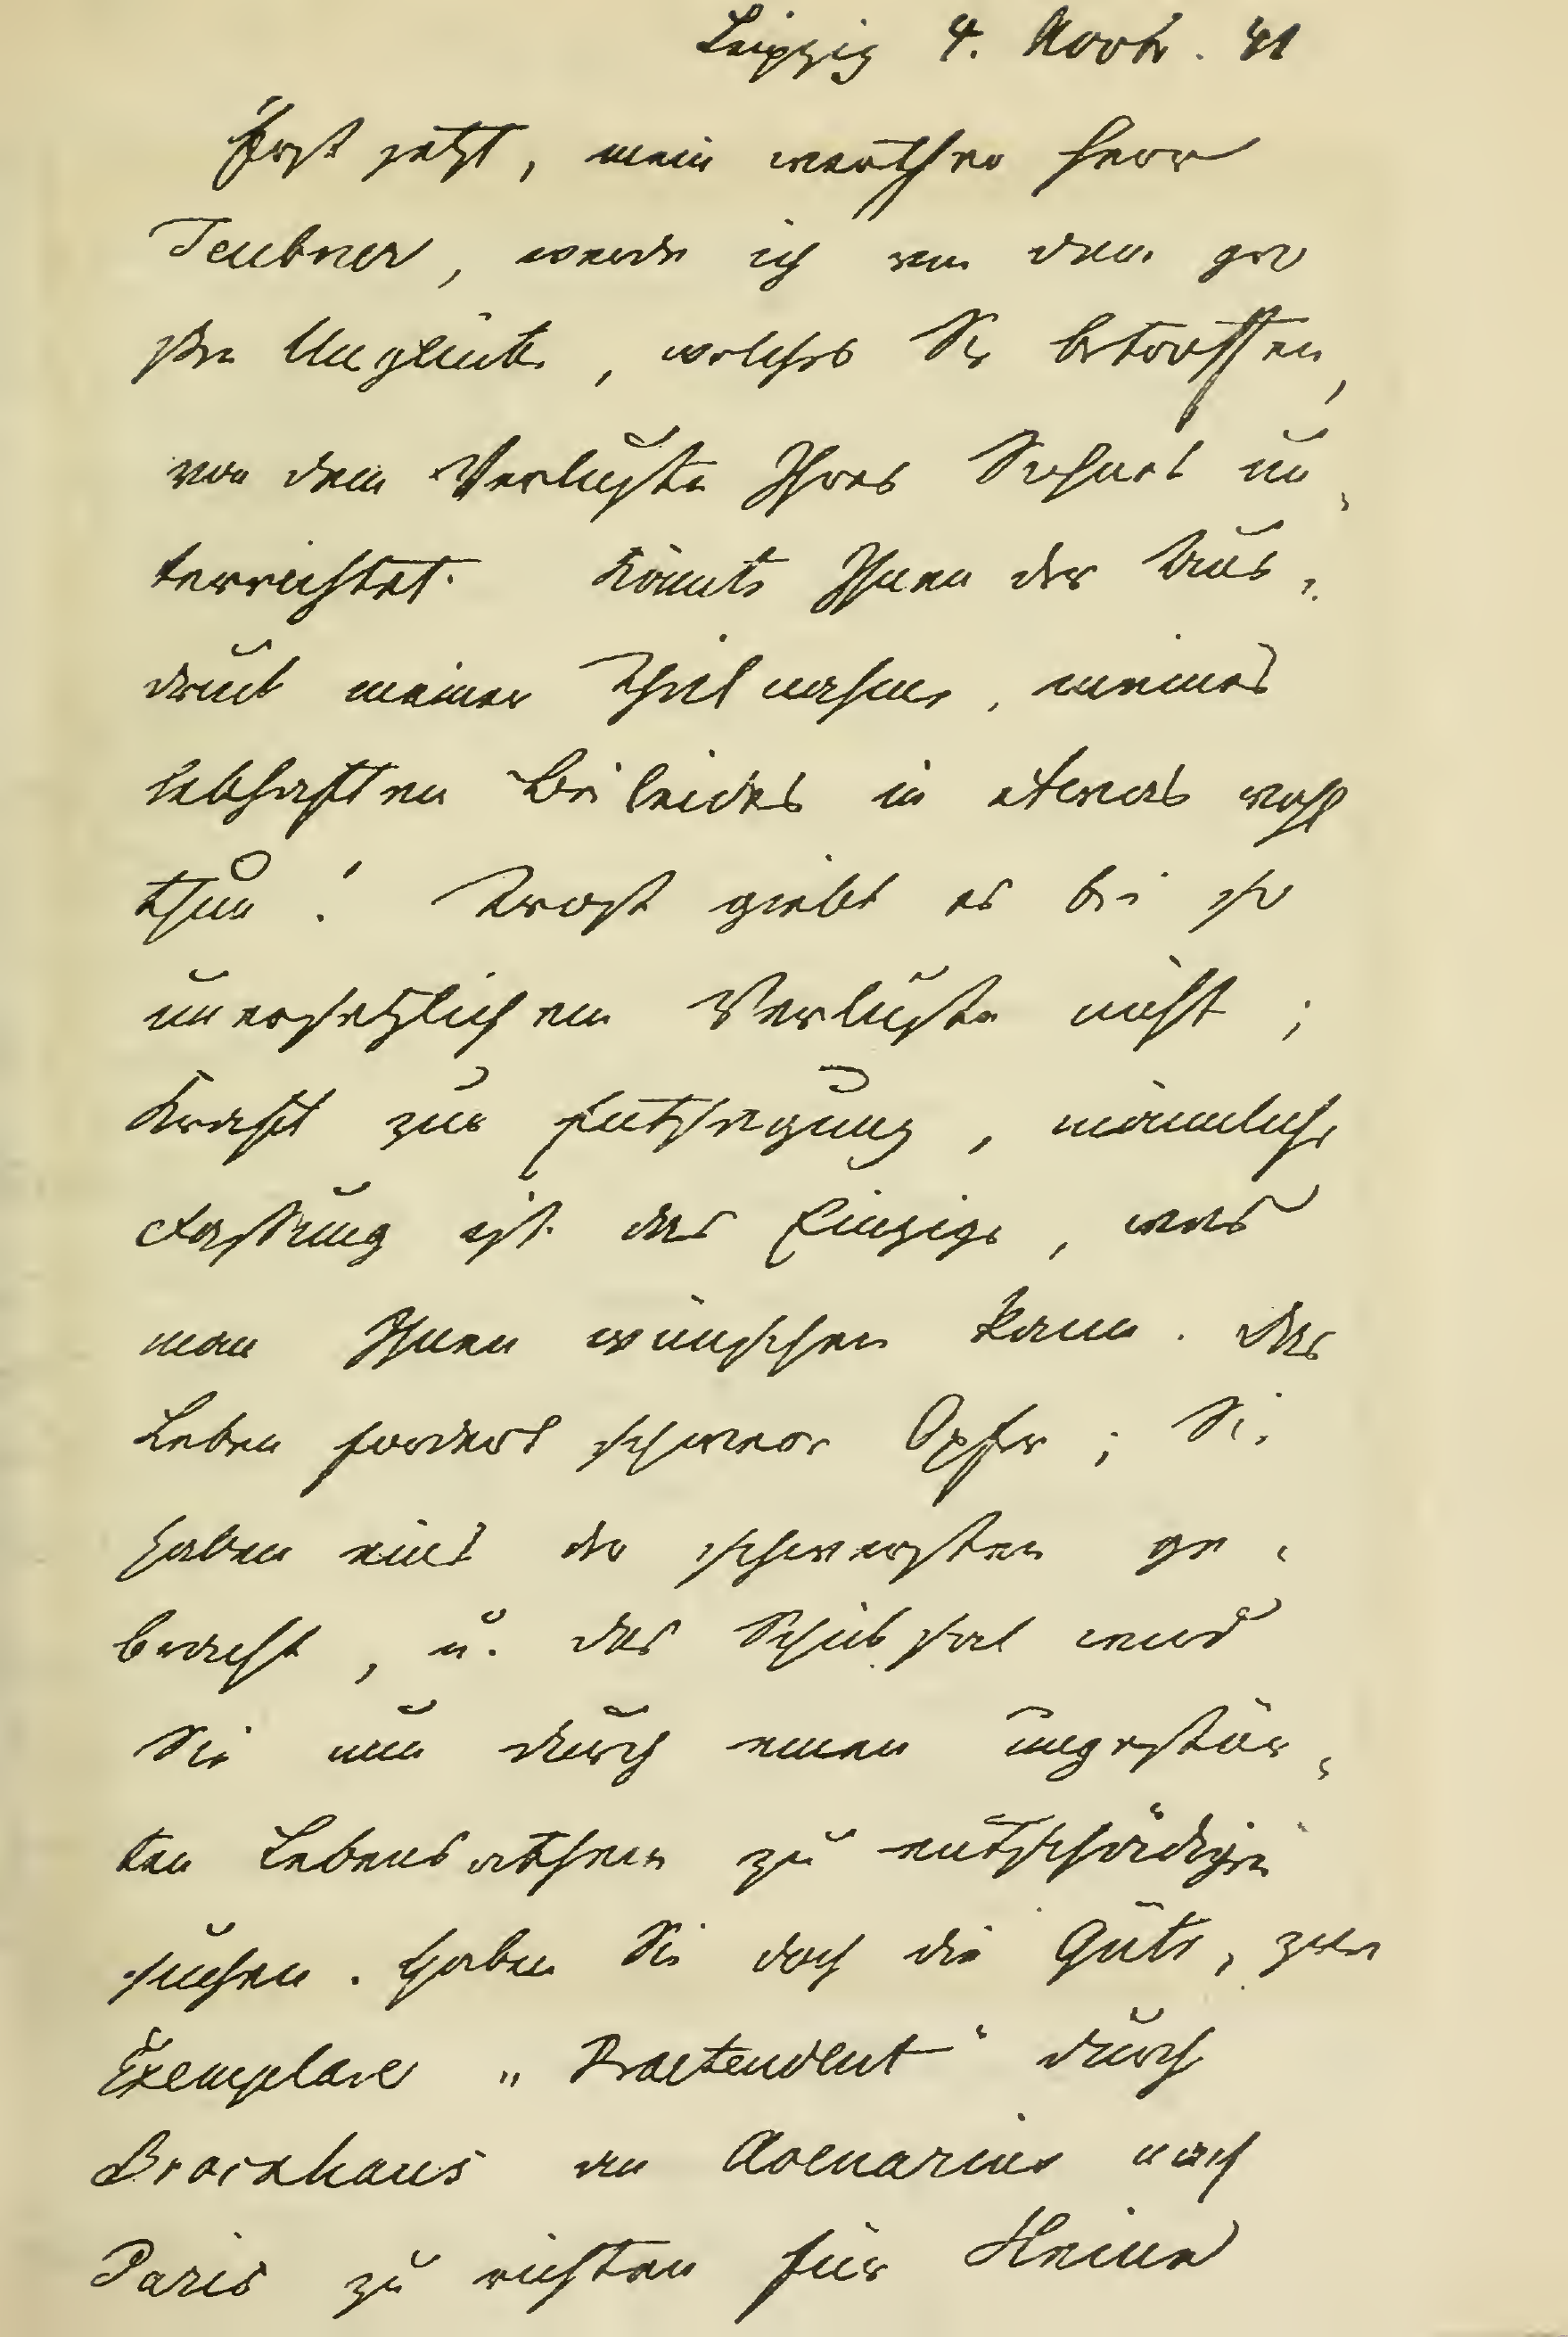 Leipzig 4. Novbr. 41
Erst jetzt, mein werther Herr
Teubner, werde ich von dem gro
ßen Unglücke, welches Sie betroffen,
von dem Verluste Ihres Sohnes un-
terrichtet. Könnte Ihnen der Aus-
druck meiner Theilnahme, meines
lebhaften Beileides in etwas wohl
thun! Trost giebt es bei so
unersetzlichem Verluste nicht;
Kraft zur Entsagung, männliche
Fassung ist das Einzige, was
man Ihnen wünschen kann. Das
Leben fordert schwere Opfer; Sie
haben eins der schwersten ge-
bracht, u. das Schicksal wird
Sie nun durch einen ungestör-
ten Lebensathem zu entschädigen
suchen. Haben Sie doch die Güte, zwei
Exemplare „Praetendent“ durch
Brockhaus an Avenarius nach
Paris zu richten für Heine